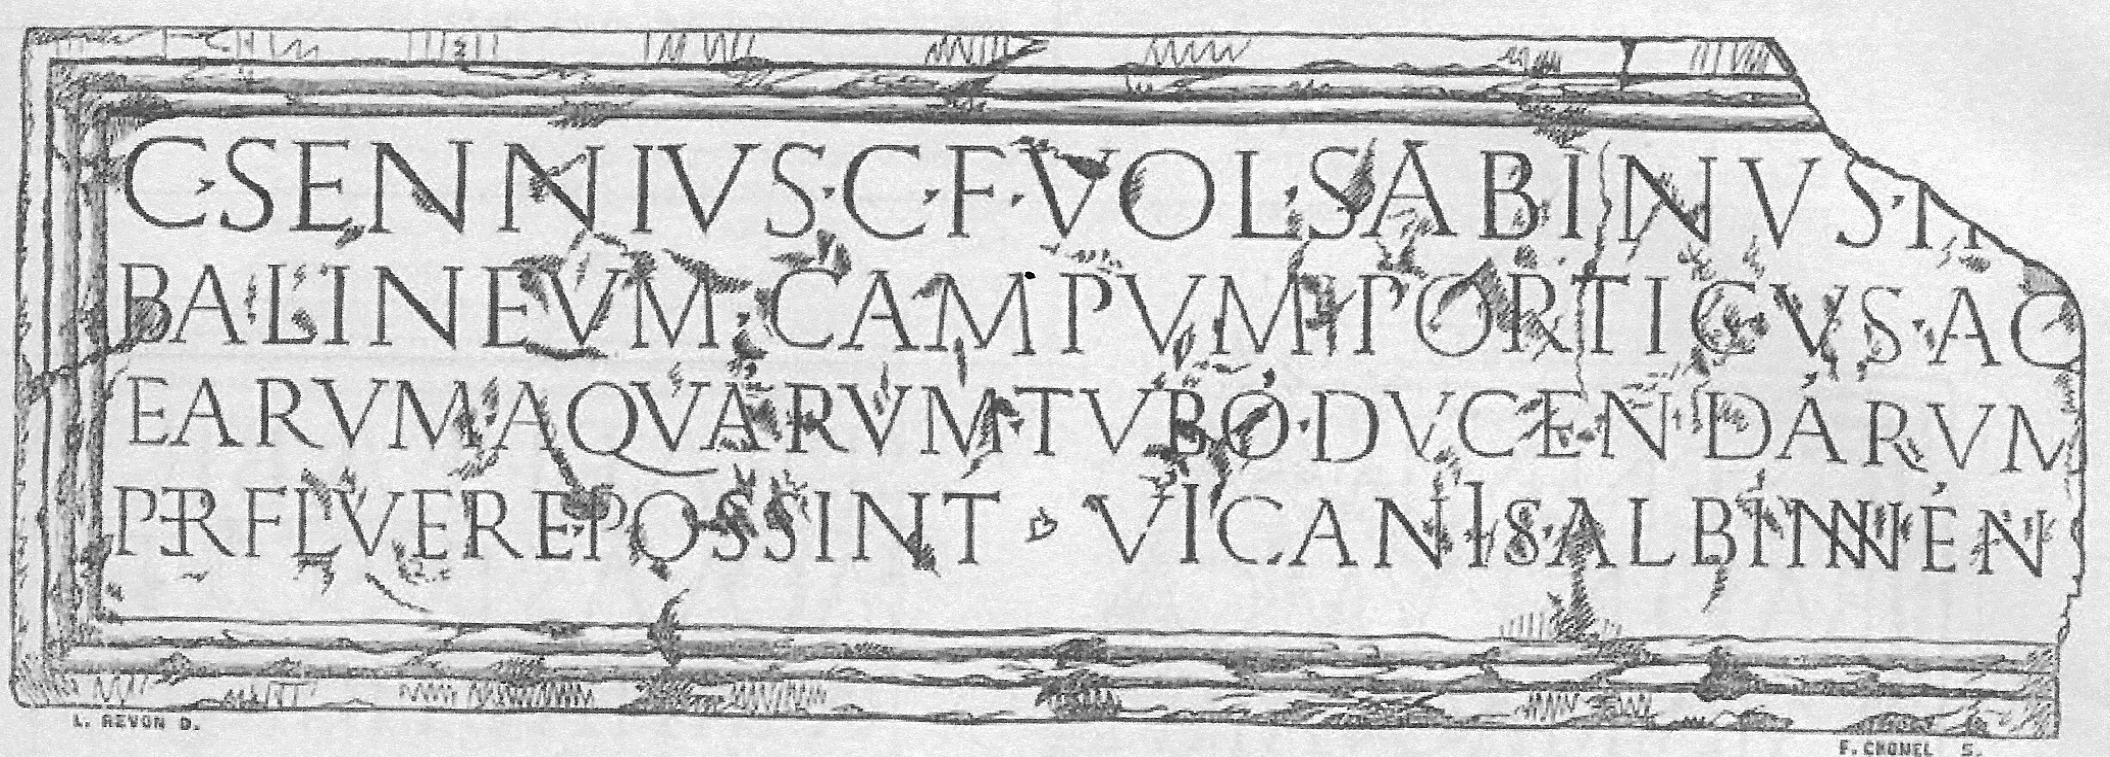 C·SENNIVS·C·F·VOL·SABINVS·
BALINEVM·CAMPVM·PORTICVS·AQ
EARVM·AQVARVM·TVBÓ·DVCENDÁRVM
PERFLVERE·POSSINT ❦ VICANIS·ALBINNÉN
L. REVON D.
F. CHOMEL S.